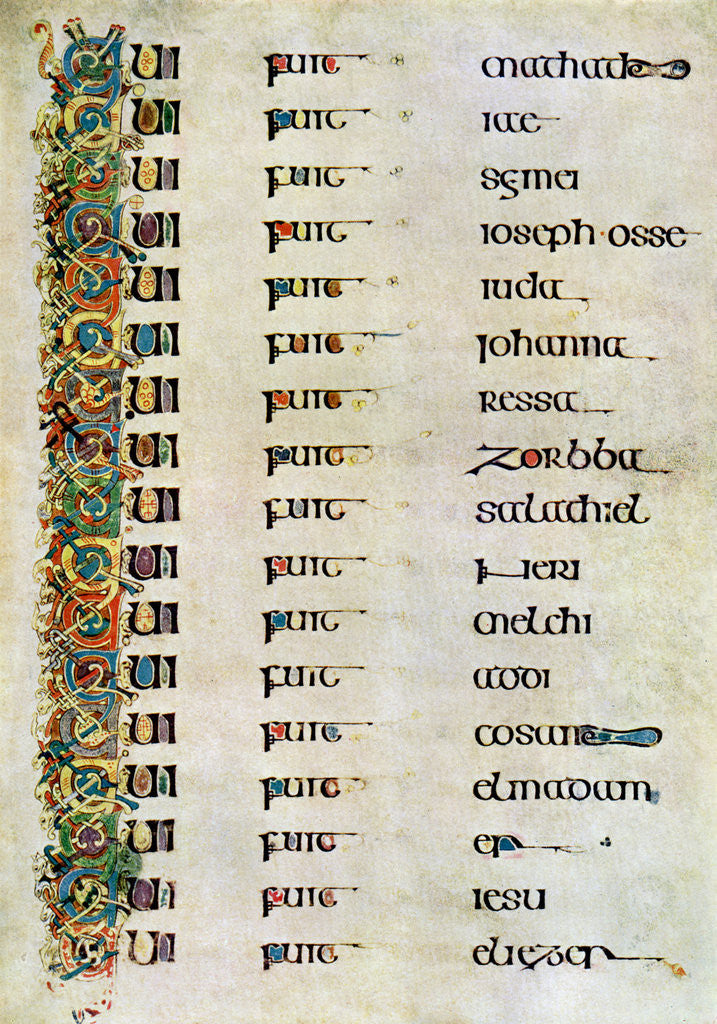 QUI fuit mathath
QUI fuit iae
QUI fuit semei
QUI fuit ioseph·osse
QUI fuit iuda
QUI fuit iohanna
QUI fuit ressa
QUI fuit zorbba
QUI fuit salathiel
QUI fuit neri
QUI fuit melchi
QUI fuit addi
QUI fuit cosan
QUI fuit elmadam
QUI fuit er
QUI fuit iesu
QUI fuit eliezer